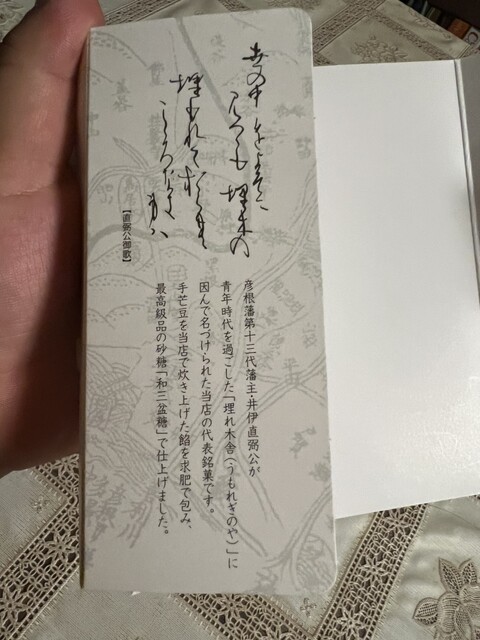 世の中をよそに
見つゝも埋木の
埋もれておらむ
こゝろなき
身ハ
【直弼公御歌】
彦根藩第十三代藩主・井伊直弼公が
青年時代を過ごした「埋れ木舎(うもれぎのや)」に
因んで名づけられた当店の代表銘菓です。
手芒豆を当店で炊き上げた餡を求肥で包み、
最高級品の砂糖「和三盆糖」で仕上げました。